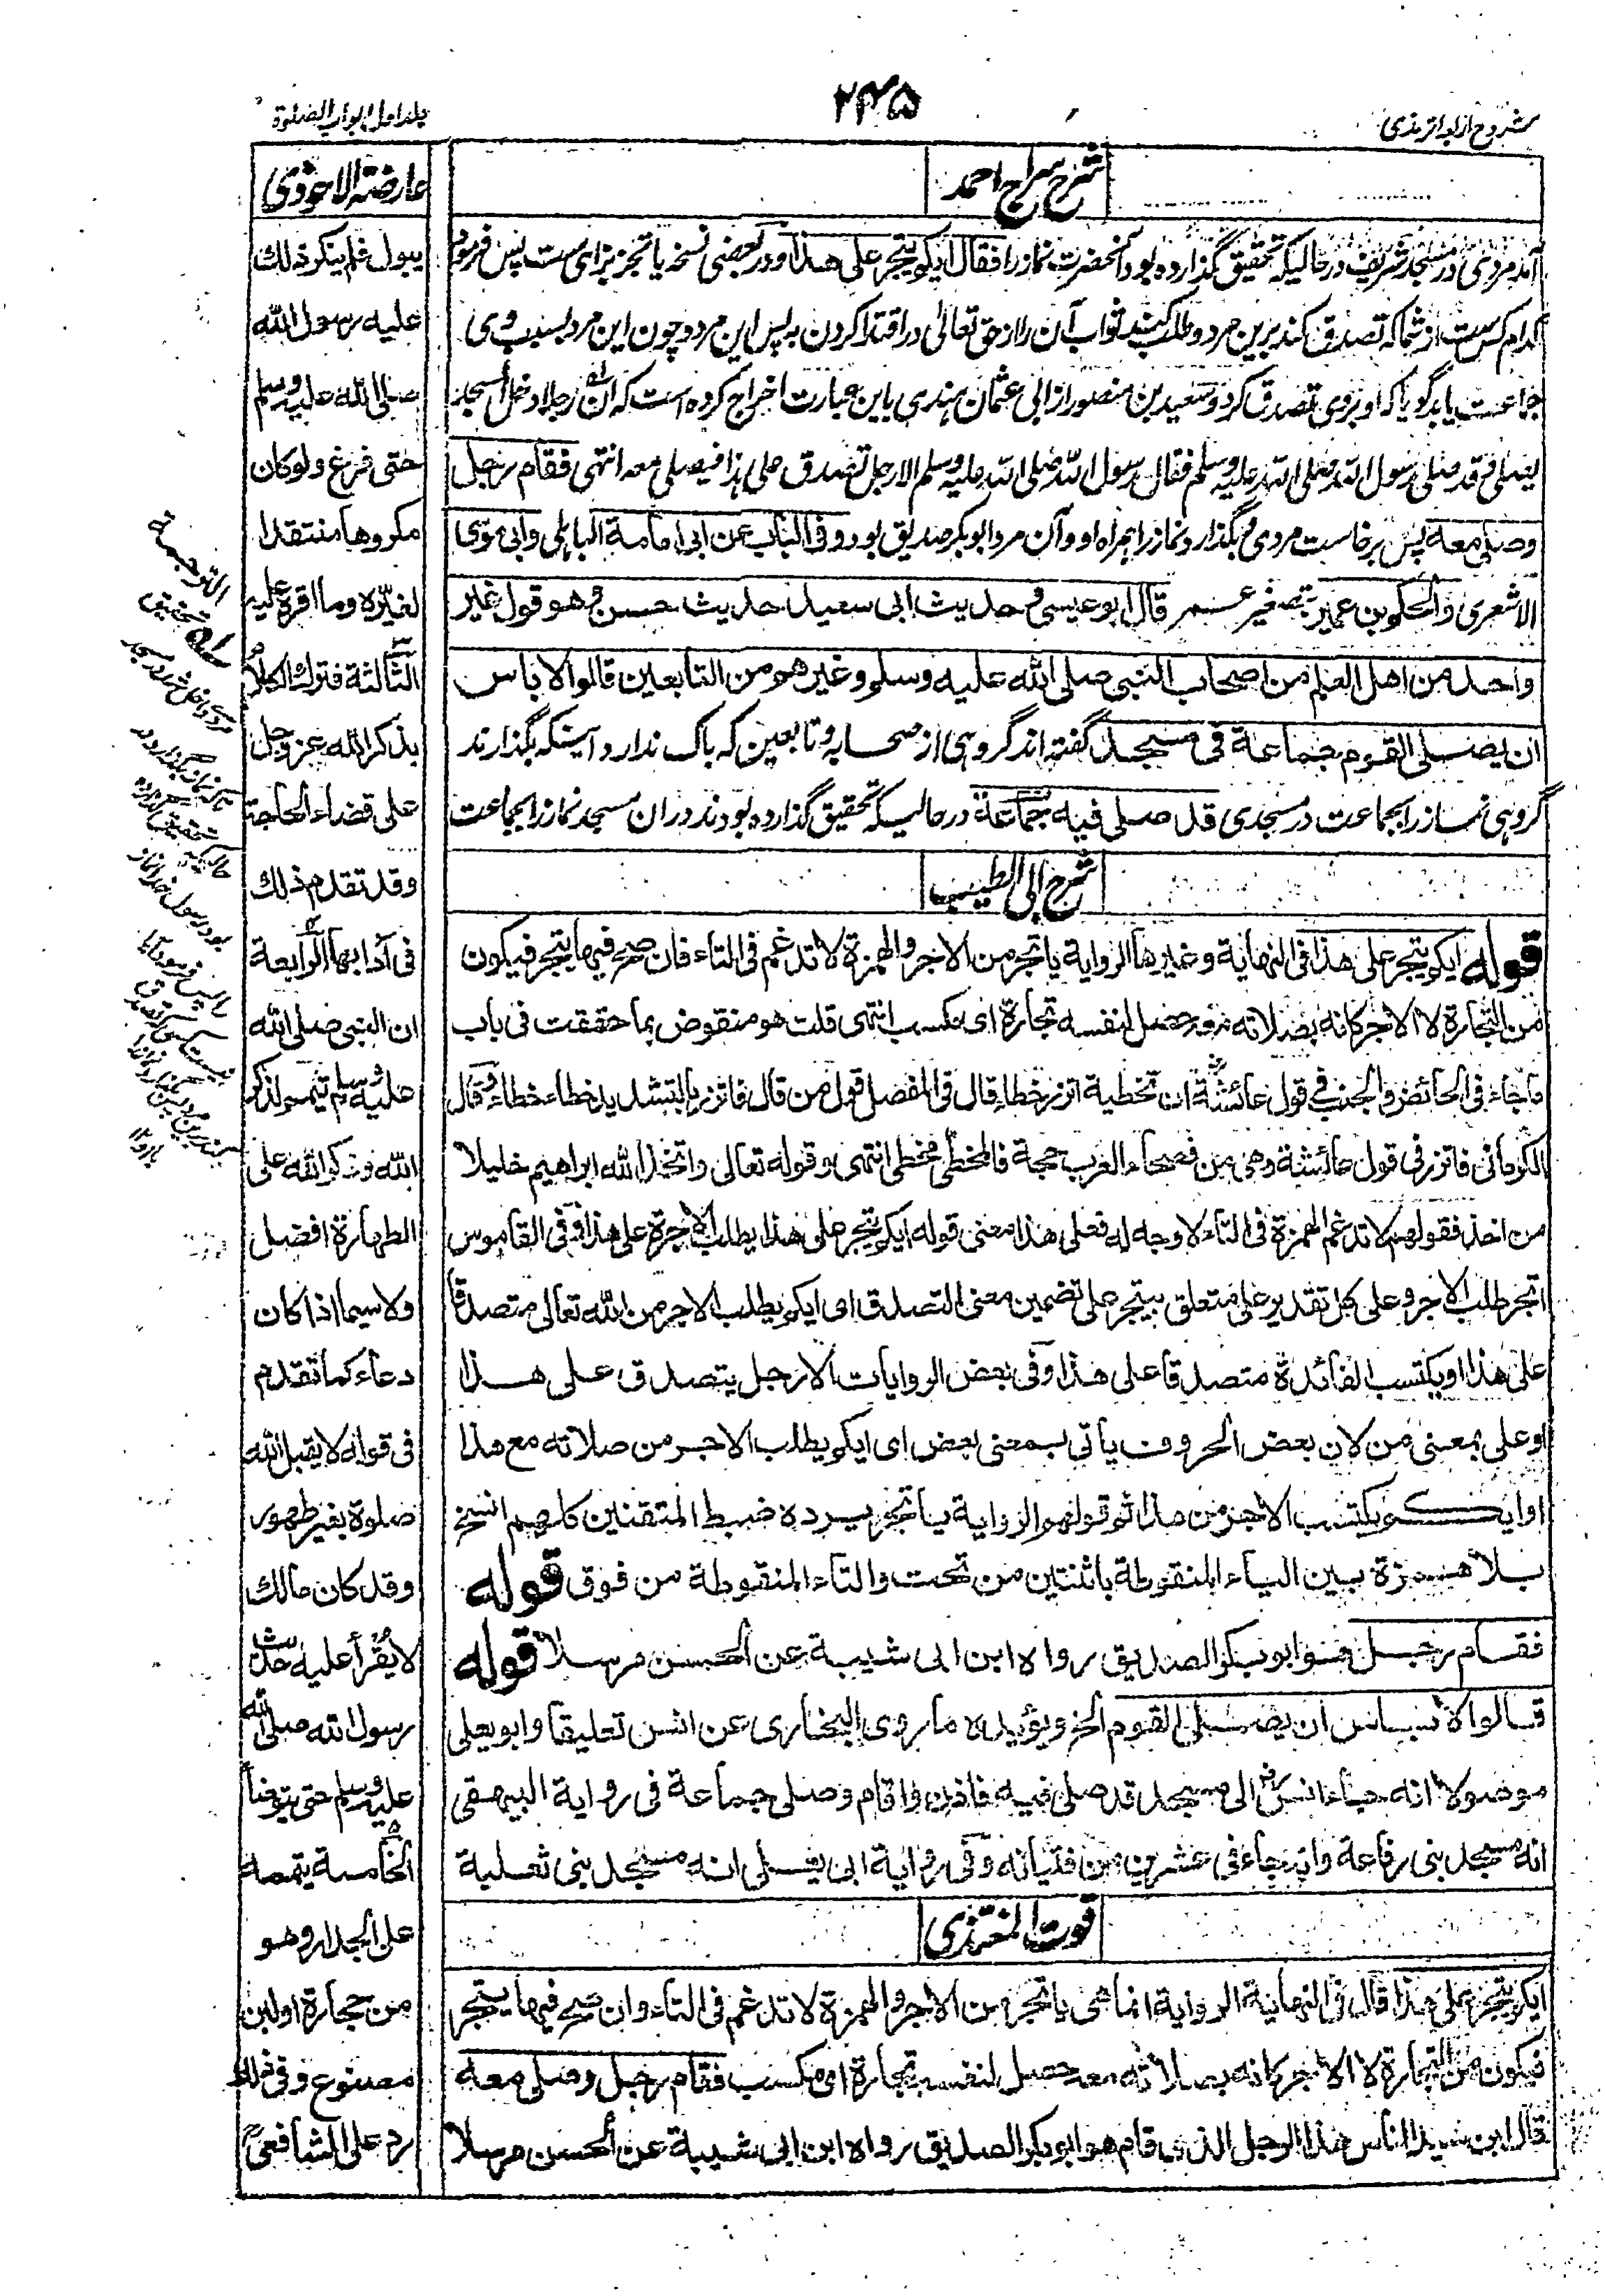 شروح اربعه ترمذی
۲۴۵
جلد اول ابواب الصلوة
شرح سراج احمد
آمد مردی در مسجد شریف در حالیکه تحقیق گذارده بود آنحضرت نماز را فقال ایکم یتجر علی هذا و در بعضی نسخه یا تجر بزای ست پس فرمود
کدام کس ست از شما که تصدق کند برین مرد و طلب کند ثواب آن را از حق تعالی در اقتدا کردن به پس این مرد و چون این مرد بسبب وی
جماعت یابد گویا که او بروی تصدق کرد و سعید بن منصور از ابی عثمان هندی باین عبارت اخراج کرده است که ان رجلا دخل المسجد
یصلی و قد صلی رسول الله صلی الله علیه وسلم فقال رسول الله صلی الله علیه وسلم الا رجل تصدق علی هذا فیصلی معه انتهی فقام رجل
وصلی معه پس برخاست مردی و بگذارد نماز را همراه او و آن مرد ابوبکر صدیق بود و فی الباب عن ابی امامة الباهلی وابی موسی
الاشعری والحکم بن عمیر بتصغیر عمر قال ابو عیسی و حدیث ابی سعید حدیث حسن و هو قول غیر
واحد من اهل العلم من اصحاب النبی صلی الله علیه وسلم وغیرهم من التابعین قالوا لا باس
ان یصلی القوم جماعة فی مسجد گفته اند گروهی از صحابه و تابعین که باک ندارد آینکه بگذارند
گروهی نماز را بجماعت در مسجدی قد صلی فیه جماعة در حالیکه تحقیق گذارده بودند دران مسجد نماز را بجماعت
شرح ابی الطیب
قوله ایکم یتجر علی هذا فی النهایة وغیرها الروایة یاتجر من الاجر والهمزة لا تدغم فی التاء فان صح فیها یتجر فیکون
من التجارة لا الاجر کانه بصلاته معه حصل لنفسه تجارة ای مکسب انتهی قلت هو منقوض بما حققت فی باب
ماجاء فی الحائض والجنب فی قول عائشة ان تخطیة اتزر خطاء قال فی المفصل قول من قال فاتزر بالتشدید خطاء خطاء وقال
الکرمانی فاتزر فی قول عائشة وهی من فصحاء العرب حجة فالمخطی مخطی انتهی وقوله تعالی واتخذ الله ابراهیم خلیلا
من اخذ فقولهم لا تدغم الهمزة فی التاء لا وجه له فعلی هذا معنی قوله ایکم یتجر علی هذا یطلب الاجرة علی هذا وفی القاموس
اتجر طلب الاجر وعلی کل تقدیر علی متعلق بیتجر علی تضمین معنی التصدق ای ایکم یطلب الاجر من الله تعالی متصدقا
علی هذا او یکتسب الفائدة متصدقا علی هذا وفی بعض الروایات الا رجل یتصدق علی هذا
او علی بمعنی من لان بعض الحروف یأتی بمعنی بعض ای ایکم یطلب الاجر من صلاته مع هذا
او ایکم یکتسب الاجر من هذا ثم قولهم الروایة یاتجر یرده ضبط المتقنین کلهم النسخ
بلا همزة بین الیاء المنقوطة باثنتین من تحت والتاء المنقوطة من فوق قوله
فقام رجل هو ابو بکر الصدیق رواه ابن ابی شیبة عن الحسن مرسلا قوله
قالوا لا باس ان یصلی القوم الخ ویؤیده ما روی البخاری عن انس تعلیقا وابو یعلی
موصولا انه جاء انس الی مسجد قد صلی فیه فاذن واقام وصلی جماعة فی روایة البیهقی
انه مسجد بنی رفاعة وانه جاء فی عشرین من فتیانه وفی روایة ابی یعلی انه مسجد بنی ثعلبة
قوت المغتذی
ایکم یتجر علی هذا قال فی النهایة الروایة انما هی یاتجر من الاجر والهمزة لا تدغم فی التاء وان صح فیها یتجر
فیکون من التجارة لا الاجر کانه بصلاته معه حصل لنفسه تجارة ای مکسب فقام رجل وصلی معه
قال ابن سید الناس هذا الرجل الذی قام هو ابو بکر الصدیق رواه ابن ابی شیبة عن الحسن مرسلا
عارضة الاحوذی
یبول فلم ینکر ذلك
علیه رسول الله
صلی الله علیه وسلم
حتی فرغ ولو کان
مکروها منتقدا
لغیره وما اقره علیه
الثالثة فترك الکلام
بذکر الله عز وجل
علی قضاء الحاجة
وقد تقدم ذلك
فی آدابها الرابعة
ان النبی صلی الله
علیه وسلم تیمم لذکر
الله وذکر الله علی
الطهارة افضل
ولا سیما اذا کان
دعاء کما تقدم
فی قوله لا یقبل الله
صلوة بغیر طهور
وقد کان مالك
لا یقرأ علیه حدیث
رسول الله صلی الله
علیه وسلم حتی یتوضأ
الخامسة یتیممه
علی الجدار وهو
من حجارة او لبن
مصنوع وفی ذلك
رد علی الشافعی
الترجمة
له تحقیق
مردی داخل شد در مسجد
تاکه نماز بگذارد در
حالیکه تحقیق گذارده
بود رسول خدا نماز
را پس فرمود آیا
نیست کسی که تصدق